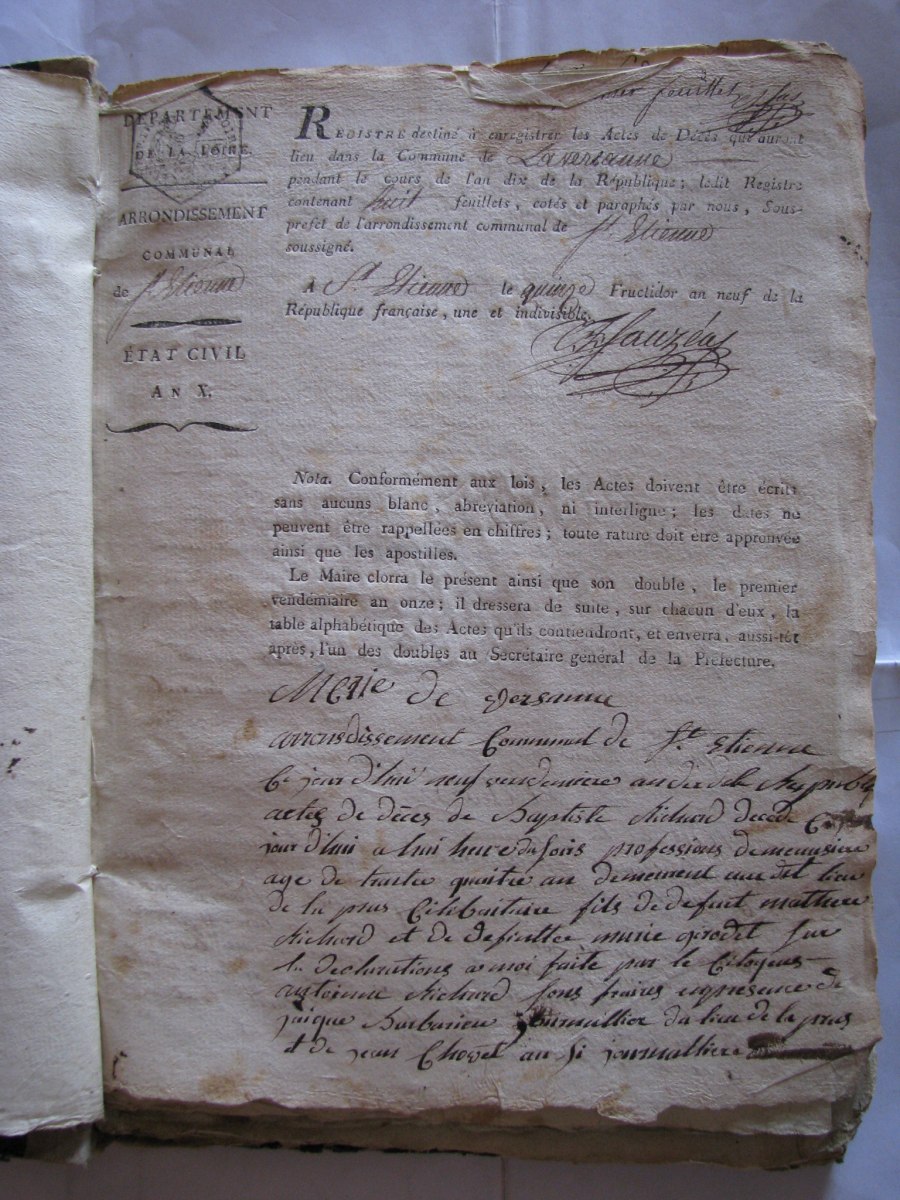 feuillet
DÉPARTEMENT
DE LA LOIRE.
ARRONDISSEMENT
COMMUNAL
de St Etienne
ÉTAT CIVIL
AN X.
REGISTRE destiné à enregistrer les Actes de Décès qui auront
lieu dans la Commune de Laversanne
pendant le cours de l'an dix de la République; ledit Registre
contenant huit feuillets, cotés et paraphés par nous, Sous-
prefet de l'arrondissement communal de St Etienne
soussigné.
A St Etienne le quinze Fructidor an neuf de la
République française, une et indivisible.
Sauzéas
Nota. Conformément aux lois, les Actes doivent être écrits
sans aucuns blanc, abreviation, ni interligne; les dates ne
peuvent être rappellées en chiffres; toute rature doit être approuvée
ainsi que les apostilles.
Le Maire clorra le présent ainsi que son double, le premier
vendémiaire an onze; il dressera de suite, sur chacun d'eux, la
table alphabétique des Actes qu'ils contiendront, et enverra, aussi-tôt
après, l'un des doubles au Secrétaire général de la Préfecture.
Merie de versanne
arronsdissement Communal de St. etienne
Ce jour d'hui neuf vendemiere an dix de la Republi
actes de déces de Baptiste Richard decede Ce
jour d'hui a hui heure du soirs professions de menusiere
age de trante quattre an demeurent audit lieu
de la pras Celibataire fils de defunt matthieu
Richard et de defuntte marie girodet sur
la declarations a moi faite par le Citoyens
antoinne Richard sons fraires enpresence de
jaique Barbarieu journallier du lieu de la pras
et de jean Chovet au si journalliere